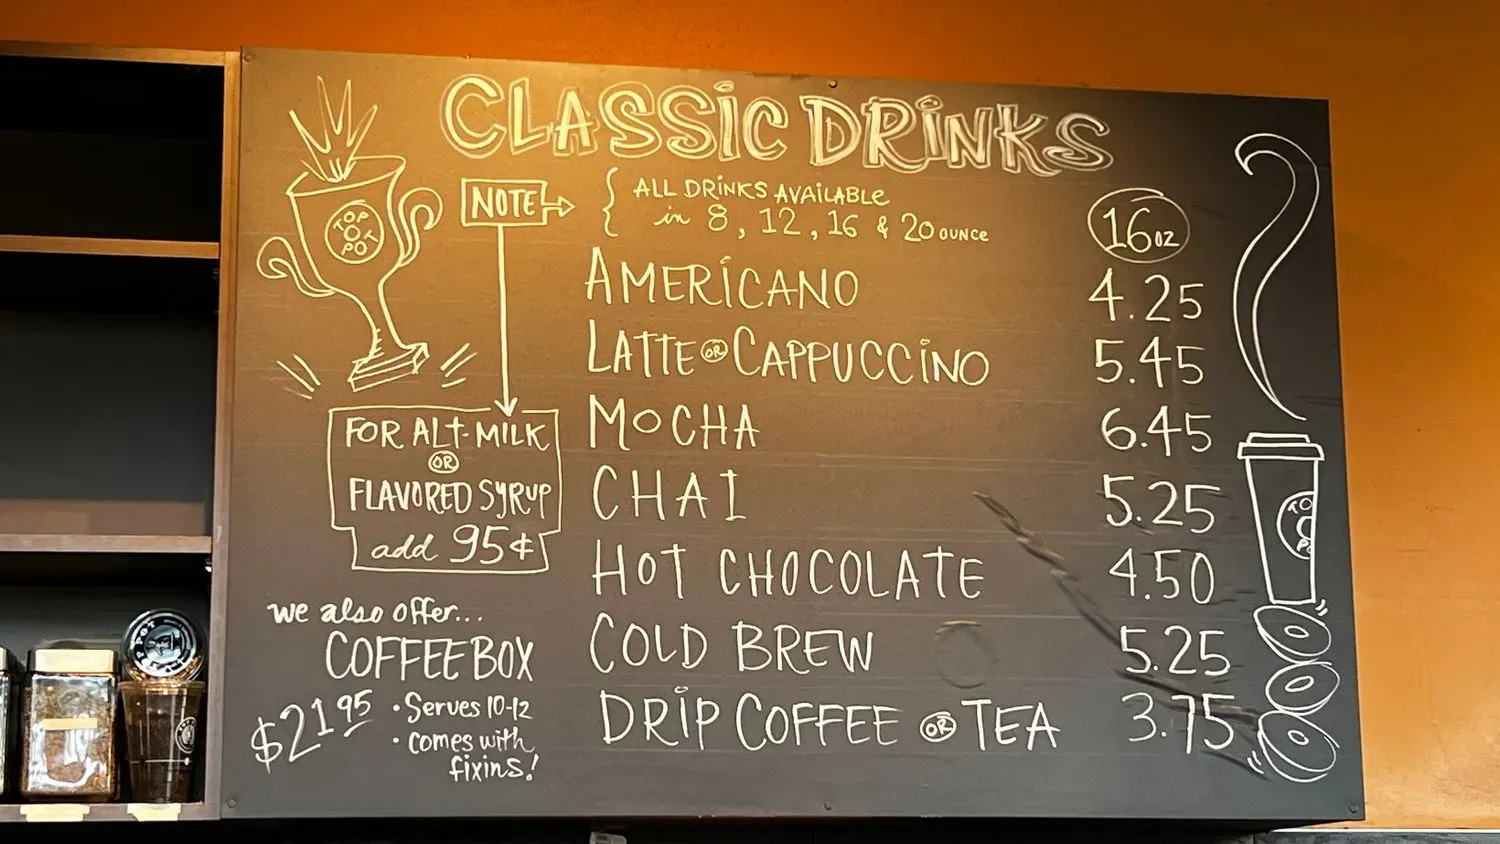 CLASSIC DRINKS
TOP
POT
NOTE
ALL DRINKS AVAILABLE
in 8, 12, 16 & 20 OUNCE
16 oz
AMERICANO 4.25
LATTE OR CAPPUCCINO 5.45
MOCHA 6.45
CHAI 5.25
HOT CHOCOLATE 4.50
COLD BREW 5.25
DRIP COFFEE OR TEA 3.75
FOR ALT-MILK
OR
FLAVORED SYRUP
add 95¢
we also offer...
COFFEE BOX
$21.95
• Serves 10-12
• comes with
fixins!